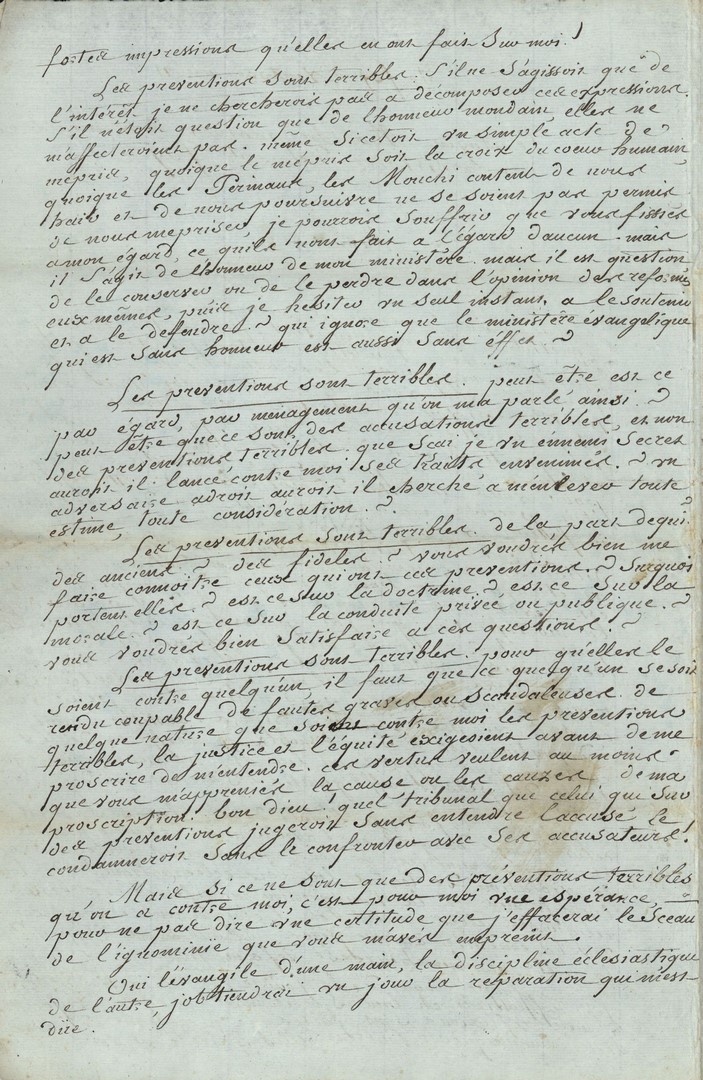 fortes impressions qu'elles en ont fait sur moi!
Les preventions sont terribles. S'il ne s'agissoit que de
l'intérêt je ne chercherois pas a décomposer ces expressions.
S'il n'étoit question que de l'honneur mondain, elles ne
m'affecteroient pas. même si cetoit un simple acte de
mépris, quoique le mépris soit la croix du coeur humain,
quoique les Ferinaux, les Mouchi content de nous
haïr et de nous poursuivre ne se soient pas permis
de nous mepriser, je pourrois souffrir que vous fissiés
a mon égard, ce quils n'ont fait a l'égard daucun. mais
il s'agit de lhonneur de mon ministère. mais il est question
de le conserver ou de le perdre dans l'opinion des reformés
eux mêmes, puis je hesiter un seul instant, a le soutenir
et a le defendre. ? qui ignore que le ministère évangelique
qui est sans honneur est aussi sans éffet. ?
Les preventions sont terribles. peut être est ce
par égard, par menagement qu'on m'a parlé ainsi. ?
peut être que ce sont des accusations terribles, et non
des preventions terribles. que scai je un ennemi secret
auroit il lancé contre moi ses traits envenimés. ? un
adversaire adroit auroit il cherché a m'enlever toute
estime, toute considération. ?
Les preventions sont terribles. de la part de qui.
des anciens ? des fideles. ? vous voudrés bien me
faire connoitre ceux qui ont ces preventions. ? Sur quoi
portent elles. ? est ce sur la doctrine. ? est ce sur la
morale. ? est ce sur la conduite privée ou publique. ?
vous voudrés bien satisfaire a ces questions. ?
Les preventions sont terribles. pour qu'elles le
soient contre quelqu'un, il faut que ce quelqu'un se soit
rendu coupable de fautes graves ou scandaleuses. de
quelque nature que soient contre moi les preventions
terribles, la justice et l'équité exigeoient avant de me
proscrire de m'entendre. ces vertus veulent au moins
que vous m'appreniés la cause ou les causes de ma
proscription. bon dieu! quel tribunal que celui qui sur
des preventions jugeroit sans entendre l'acusé le
condamneroit sans le confronter avec ses accusateurs!
Mais si ce ne sont que des préventions terribles
qu'on a contre moi, c'est pour moi une espérance,
pour ne pas dire une certitude que j'effacerai le sceau
de l'ignominie que vous m'avés empreint.
Oui l'évangile d'une main, la discipline éclesiastique
de l'autre, j'obtiendrai un jour la reparation qui m'est
düe.